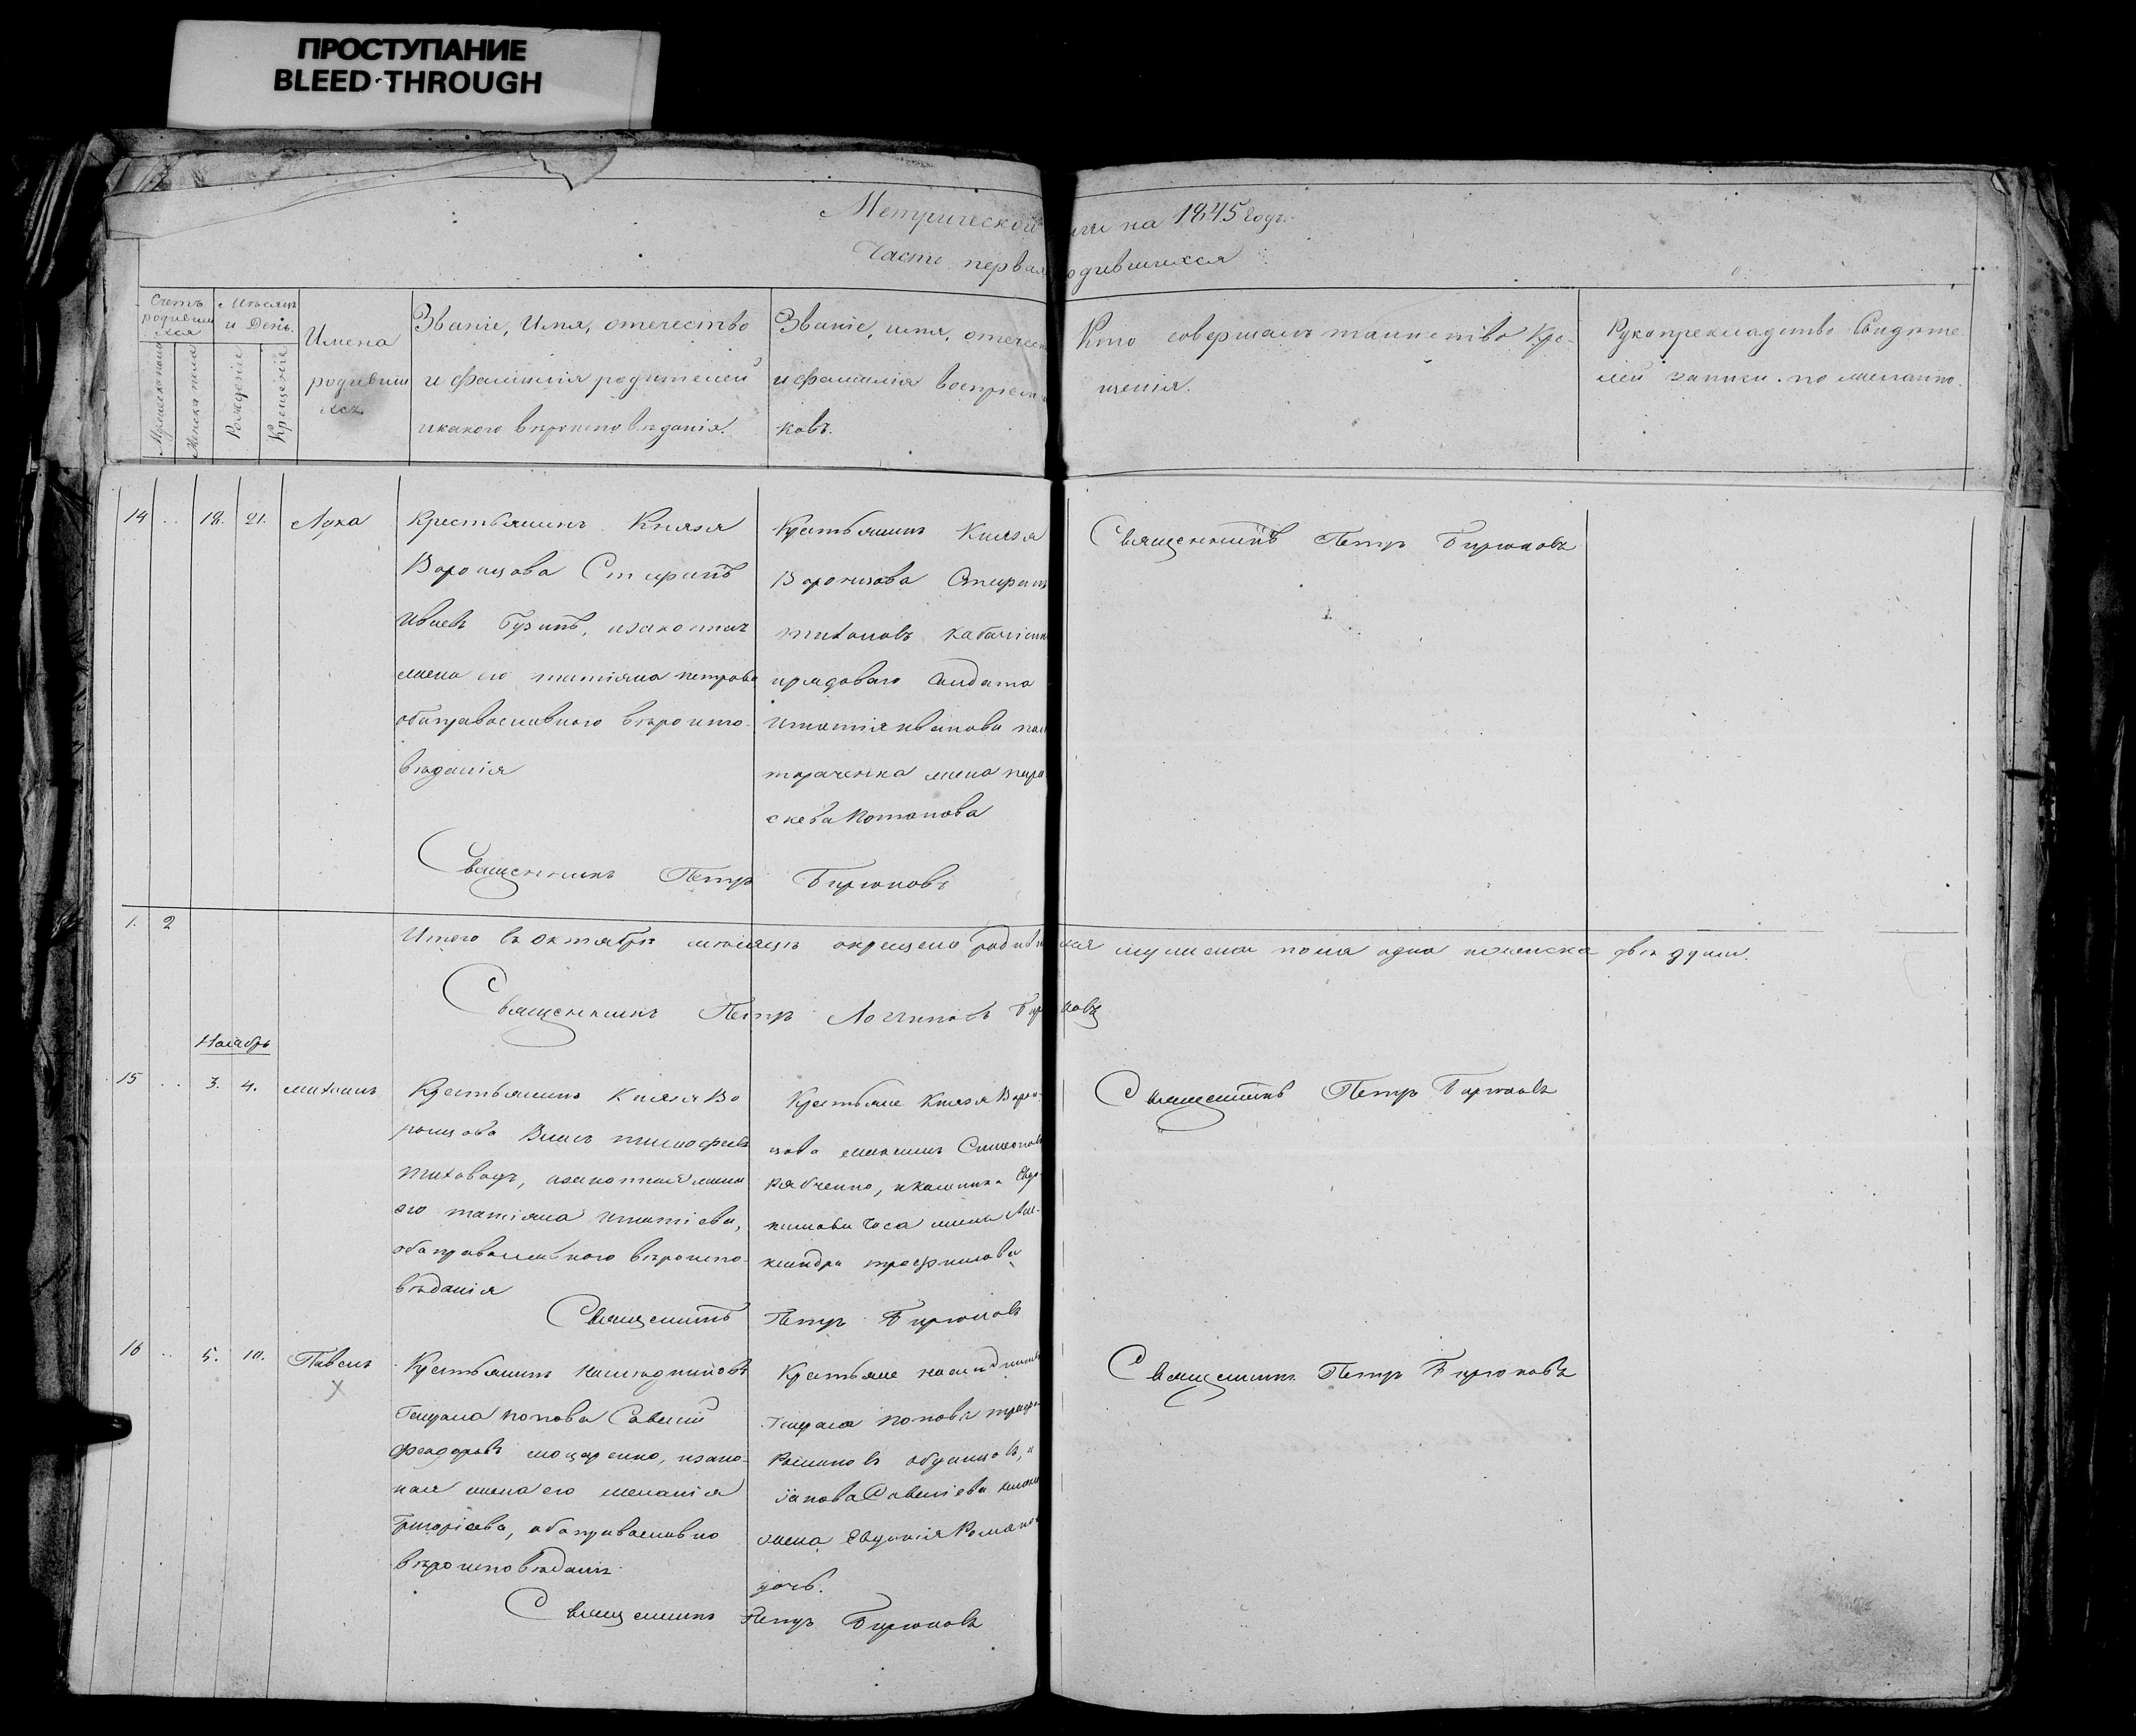 ПРОСТУПАНИЕ
BLEED-THROUGH
Метрической на 1845 годъ.
Часть первая родившихся
Счетъ родивши хся
Мужеска пола
Женска пола
Мѣсяцъ и День.
Рожденіе
Крещеніе
Имена родивши хся
Званіе, Имя, отечество
и фамилія родителей
и какого вѣроисповѣданія.
Званіе, имя, отечест
и фамилія воспріем
ковъ.
Кто совершалъ таинство Кре-
щенія.
Рукоприкладство Свидѣте
лей записи по желанію.
14 .. 18. 21. Лука
Крестьянинъ Князя
Воронцова Стефанъ
его татіяна петрова
оба православнаго вѣроиспо-
вѣданія
Крестьянинъ Князя
Воронцова
тихоновъ
ирядоваго Солдата
жена пара
скева Потапова
Священникъ Петръ Бирюковъ
Священникъ Петръ Бирюковъ
1. 2
Итого въ октябрѣ мѣсяцѣ окрещено родившихся мужеска пола одна женска двѣ души.
Священникъ Петръ Логгиновъ Бирюковъ
Ноябрь
15 .. 3. 4. михаилъ
Крестьянинъ Князя Во
ронцова тимофеевъ
его татіяна игнатіева,
оба православнаго вѣроиспо-
вѣданія
Крестьяне Князя Ворон-
цова Симеоновъ
Рябченко,
жена Але-
ксандра трофимова
Священникъ Петръ Бирюковъ
Священникъ Петръ Бирюковъ
16 .. 5. 10. Павелъ
Крестьянинъ наслѣдниковъ
Генерала попова Савелій
феодоровъ изако-
ная жена его меланія
Григоріева, оба православно
вѣроисповѣданія
Крестьяне наслѣдниковъ
Генерала попова
Романовъ
Іакова Савеліева
жена Евдокія Романов
дочь.
Священникъ Петръ Бирюковъ
Священникъ Петръ Бирюковъ